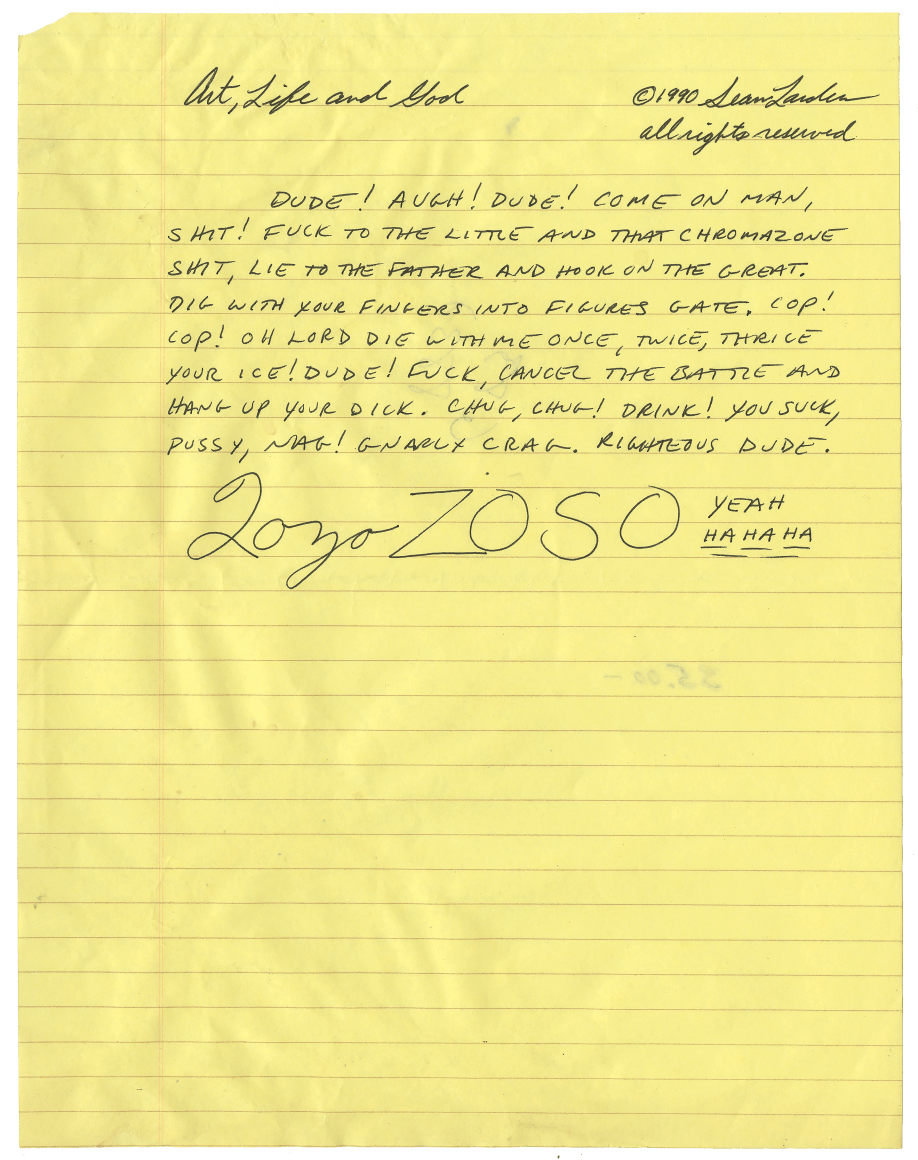 Art, Life and God
©1990 Sean Landers
all rights reserved
DUDE! AUGH! DUDE! COME ON MAN,
SHIT! FUCK TO THE LITTLE AND THAT CHROMAZONE
SHIT, LIE TO THE FATHER AND HOOK ON THE GREAT.
DIG WITH YOUR FINGERS INTO FIGURES GATE. COP!
COP! OH LORD DIE WITH ME ONCE, TWICE, THRICE
YOUR ICE! DUDE! FUCK, CANCEL THE BATTLE AND
HANG UP YOUR DICK. CHUG, CHUG! DRINK! YOU SUCK,
PUSSY, NAG! GNARLY CRAG. RIGHTEOUS DUDE.
ZOSO YEAH
HA HA HA
35.00 –